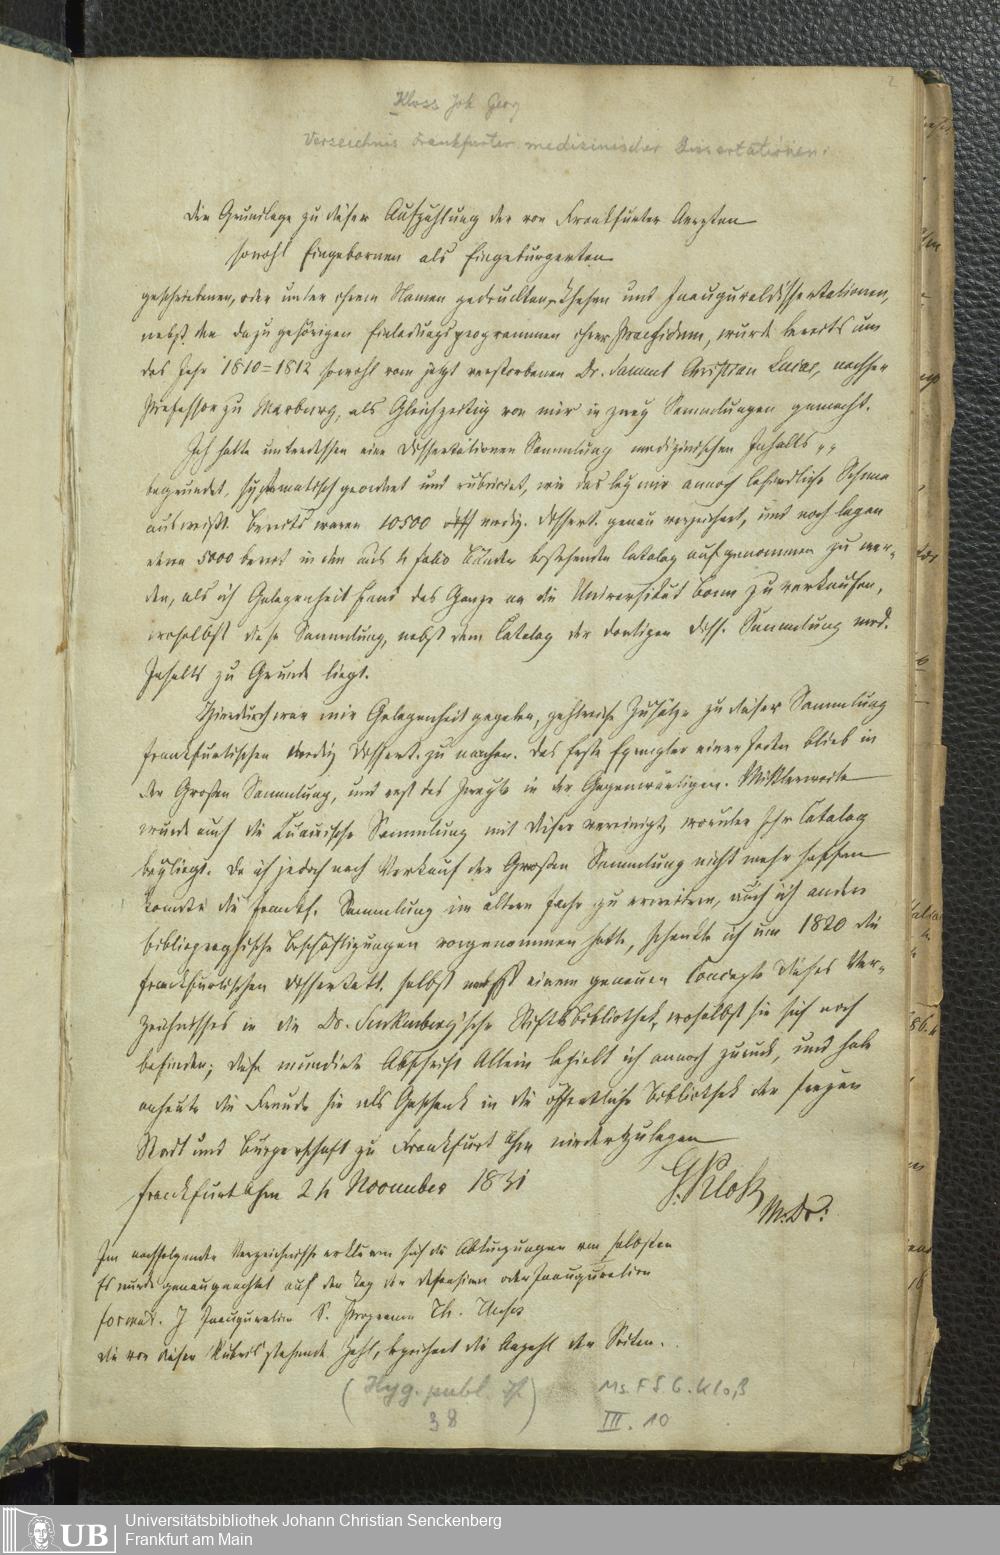 2
Kloss Joh Georg
Verzeichnis Frankfurter medizinischer Dissertationen.
Die Grundlage zu dieser Aufzählung der von Frankfurter Aerzten
sowohl Eingebornen als Eingebürgerten
geschriebenen, oder unter ihrem Namen gedruckten Thesen und Inauguraldissertationen,
nebst den dazu gehörigen Einladungsprogrammen ihrer Praesidum, wurde bereits um
das Jahr 1810=1812 sowohl vom jetzt verstorbenen Dr. Samuel Christian Lucae, nachher
Professor zu Marburg, als Gleichzeitig von mir in zwey Sammlungen gemacht.
Ich hatte unterdessen eine Dissertationen Sammlung medizinischen Inhalts
begründet, systematisch geordnet und rubricirt, wie das bey mir annoch befindliche Schema
ausweißt. Bereits waren 10500 mediz. Dissert. genau verzeichnet, und noch lagen
deren 5000 bereit in den aus 4 folio Bänden bestehenden Catalog aufgenommen zu wer-
den, als ich Gelegenheit fand das Ganze an die Universität Bonn zu verkaufen,
woselbst diese Sammlung, nebst dem Catalog der dortigen Diss. Sammlung med.
Inhalts zu Grunde liegt.
Hierdurch war mir Gelegenheit gegeben, zahlreiche Zusätze zu dieser Sammlung
frankfurtischen mediz Dissert. zu machen. Das erste Exemplar einer jeden blieb in
der Großen Sammlung, und erst das zweyte in der Gegenwärtigen. Mittlerweile
wurde auch die Lucaeische Sammlung mit dieser vereinigt, worüber Ihr Catalog
beyliegt. Da ich jedoch nach Verkauf der Großen Sammlung nicht mehr hoffen
konnte die Frankf. Sammlung im ältern Fache zu erweitern, auch ich andere
bibliographische Beschäftigungen vorgenommen hatte, schenkte ich um 1820 die
frankfurtischen Dissertatt. selbst nebst einem genauen Concepte dieses Ver-
zeichnisses in die Dr. Senkenberg'sche Stiftsbibliothek, woselbst sie sich noch
befinden; diese mundirte Abschrift Allein behielt ich annoch zurück, und habe
anheute die Freude sie als Geschenk in die öffentliche Bibliothek der freyen
Stadt und Bürgerschaft zu Frankfurt a/m niederzulegen
Frankfurt a/m 24 November 1831
G. Kloß
M. Dr:
Im nachfolgenden Verzeichnisse erklären sich die Abkürzungen von selbsten
Es wurde genau geachtet auf den Tag der Defension oder Inauguration
format. J Inauguration P. Programm Th. Theses
die vor dieser Rubrik stehende Zahl, bezeichnet die Anzahl der Seiten.
(Hyg. publ. 38)
Ms. Ff. G. Kloß
III. 10
UB
Universitätsbibliothek Johann Christian Senckenberg
Frankfurt am Main